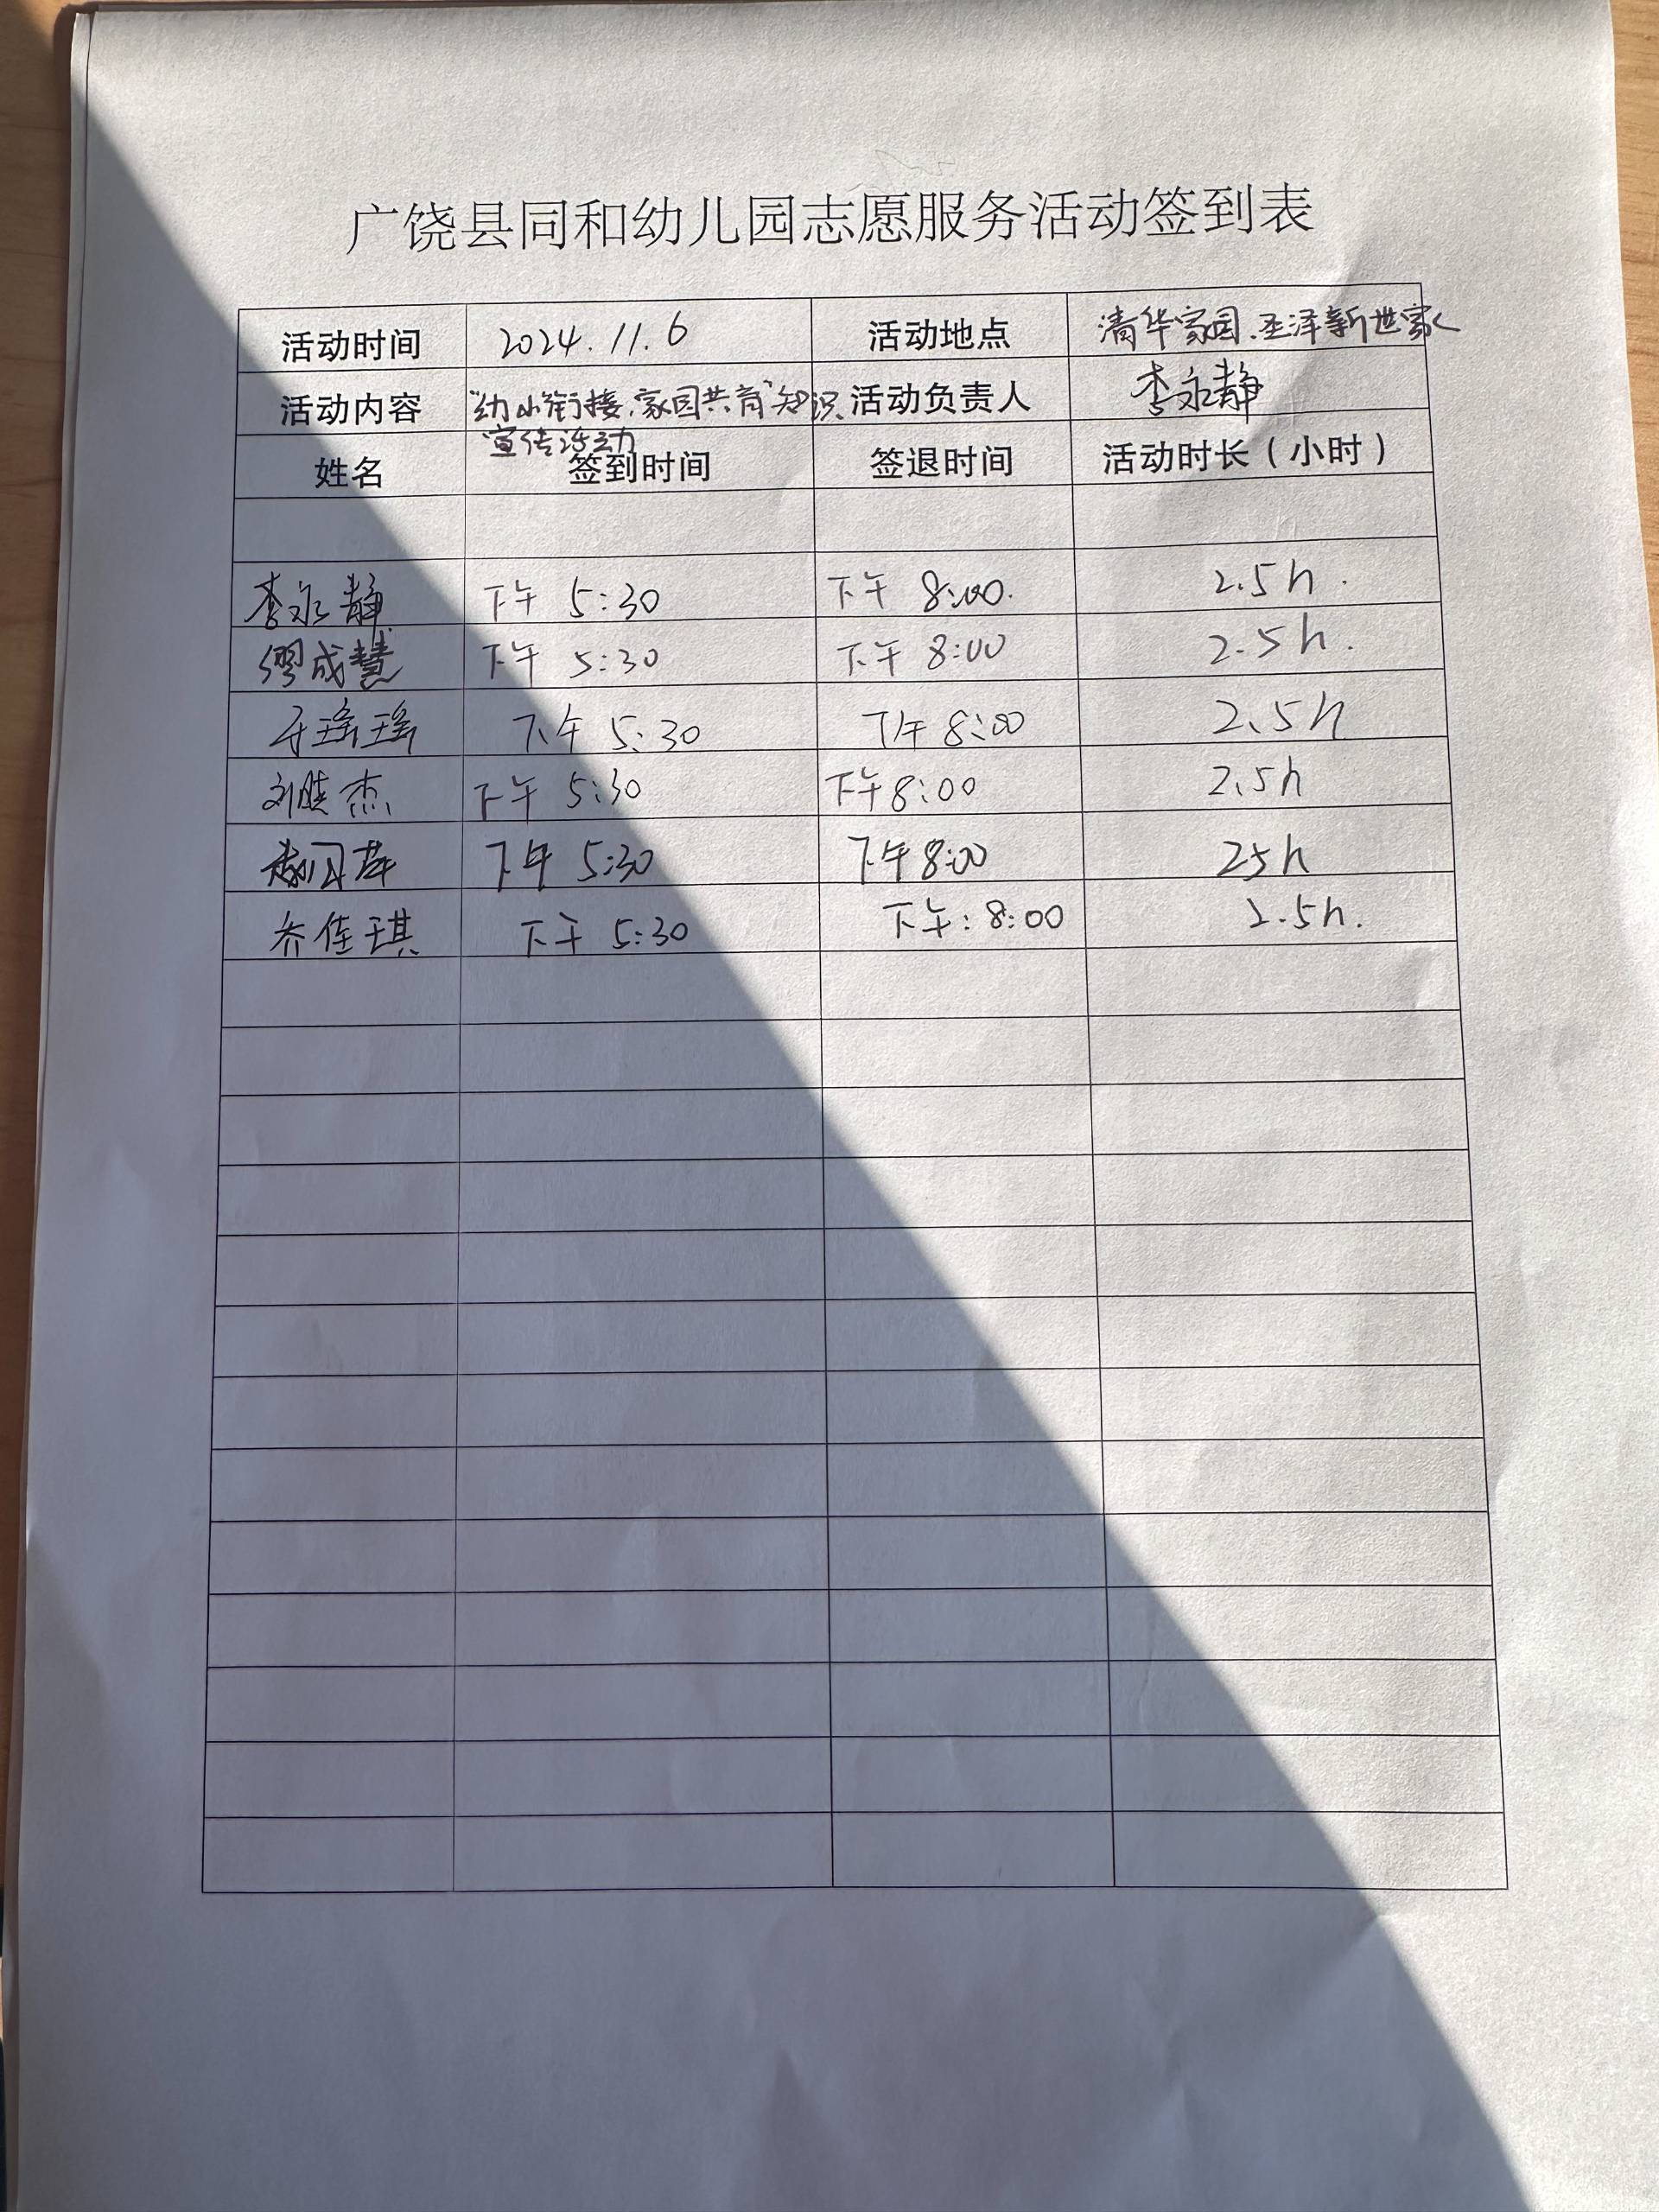 广饶县同和幼儿园志愿服务活动签到表
活动时间 2024.11.6 活动地点 清华家园、丞泽新世家
活动内容 "幼小衔接,家园共育"知识 活动负责人 李永静
宣传活动
姓名 签到时间 签退时间 活动时长（小时）
李永静 下午 5:30 下午 8:00. 2.5h.
缪成慧 下午 5:30 下午 8:00 2.5h.
于瑶瑶 下午 5:30 下午 8:00 2.5h
刘晓杰 下午 5:30 下午8:00 2.5h
下午 5:30 下午8:00 25h
乔佳琪 下午 5:30 下午:8:00 2.5h.